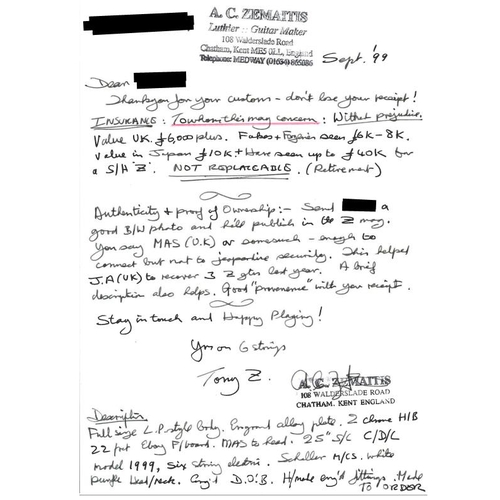 A. C. ZEMAITIS
Luthier :: Guitar Maker
108 Walderslade Road
Chatham, Kent ME5 0LL, England
Telephone: MEDWAY (01634) 865086
Sept. '99
Dear
Thankyou for your customs - don't lose your receipt!
INSURANCE: To whom this may concern: Without prejudice.
Value UK. £6,000 plus. Fakes + Forgeries seen £6K - 8K.
Value in Japan £10K + Have seen up to £40K for
a S/H 'Z'. NOT REPLACEABLE. (Retirement)
Authenticity & proof of Ownership:- Send a
good B/W photo and he'll publish in the Z mag.
You say MAS (U.K) or somesuch - enough to
connect but not to jeopardise security. This helped
J.A (UK) to recover 3 Z gtrs last year. A brief
description also helps. Good "provenence" with your receipt.
Stay in touch and Happy Playing!
Yrs on 6 strings
Tony Z.
A. C. ZEMAITIS
108 WALDERSLADE ROAD
CHATHAM, KENT ENGLAND
Description.
Full size L.P style body. Engraved alloy plate. 2 chrome H/B
22 fret Ebony F/board. MAS to head. 25" S/L C/D/L
model 1999, six string electric. Schaller M/CS. white
purple head/neck. Eng'd D.O.B. H/made eng'd fittings. Made
TO ORDER